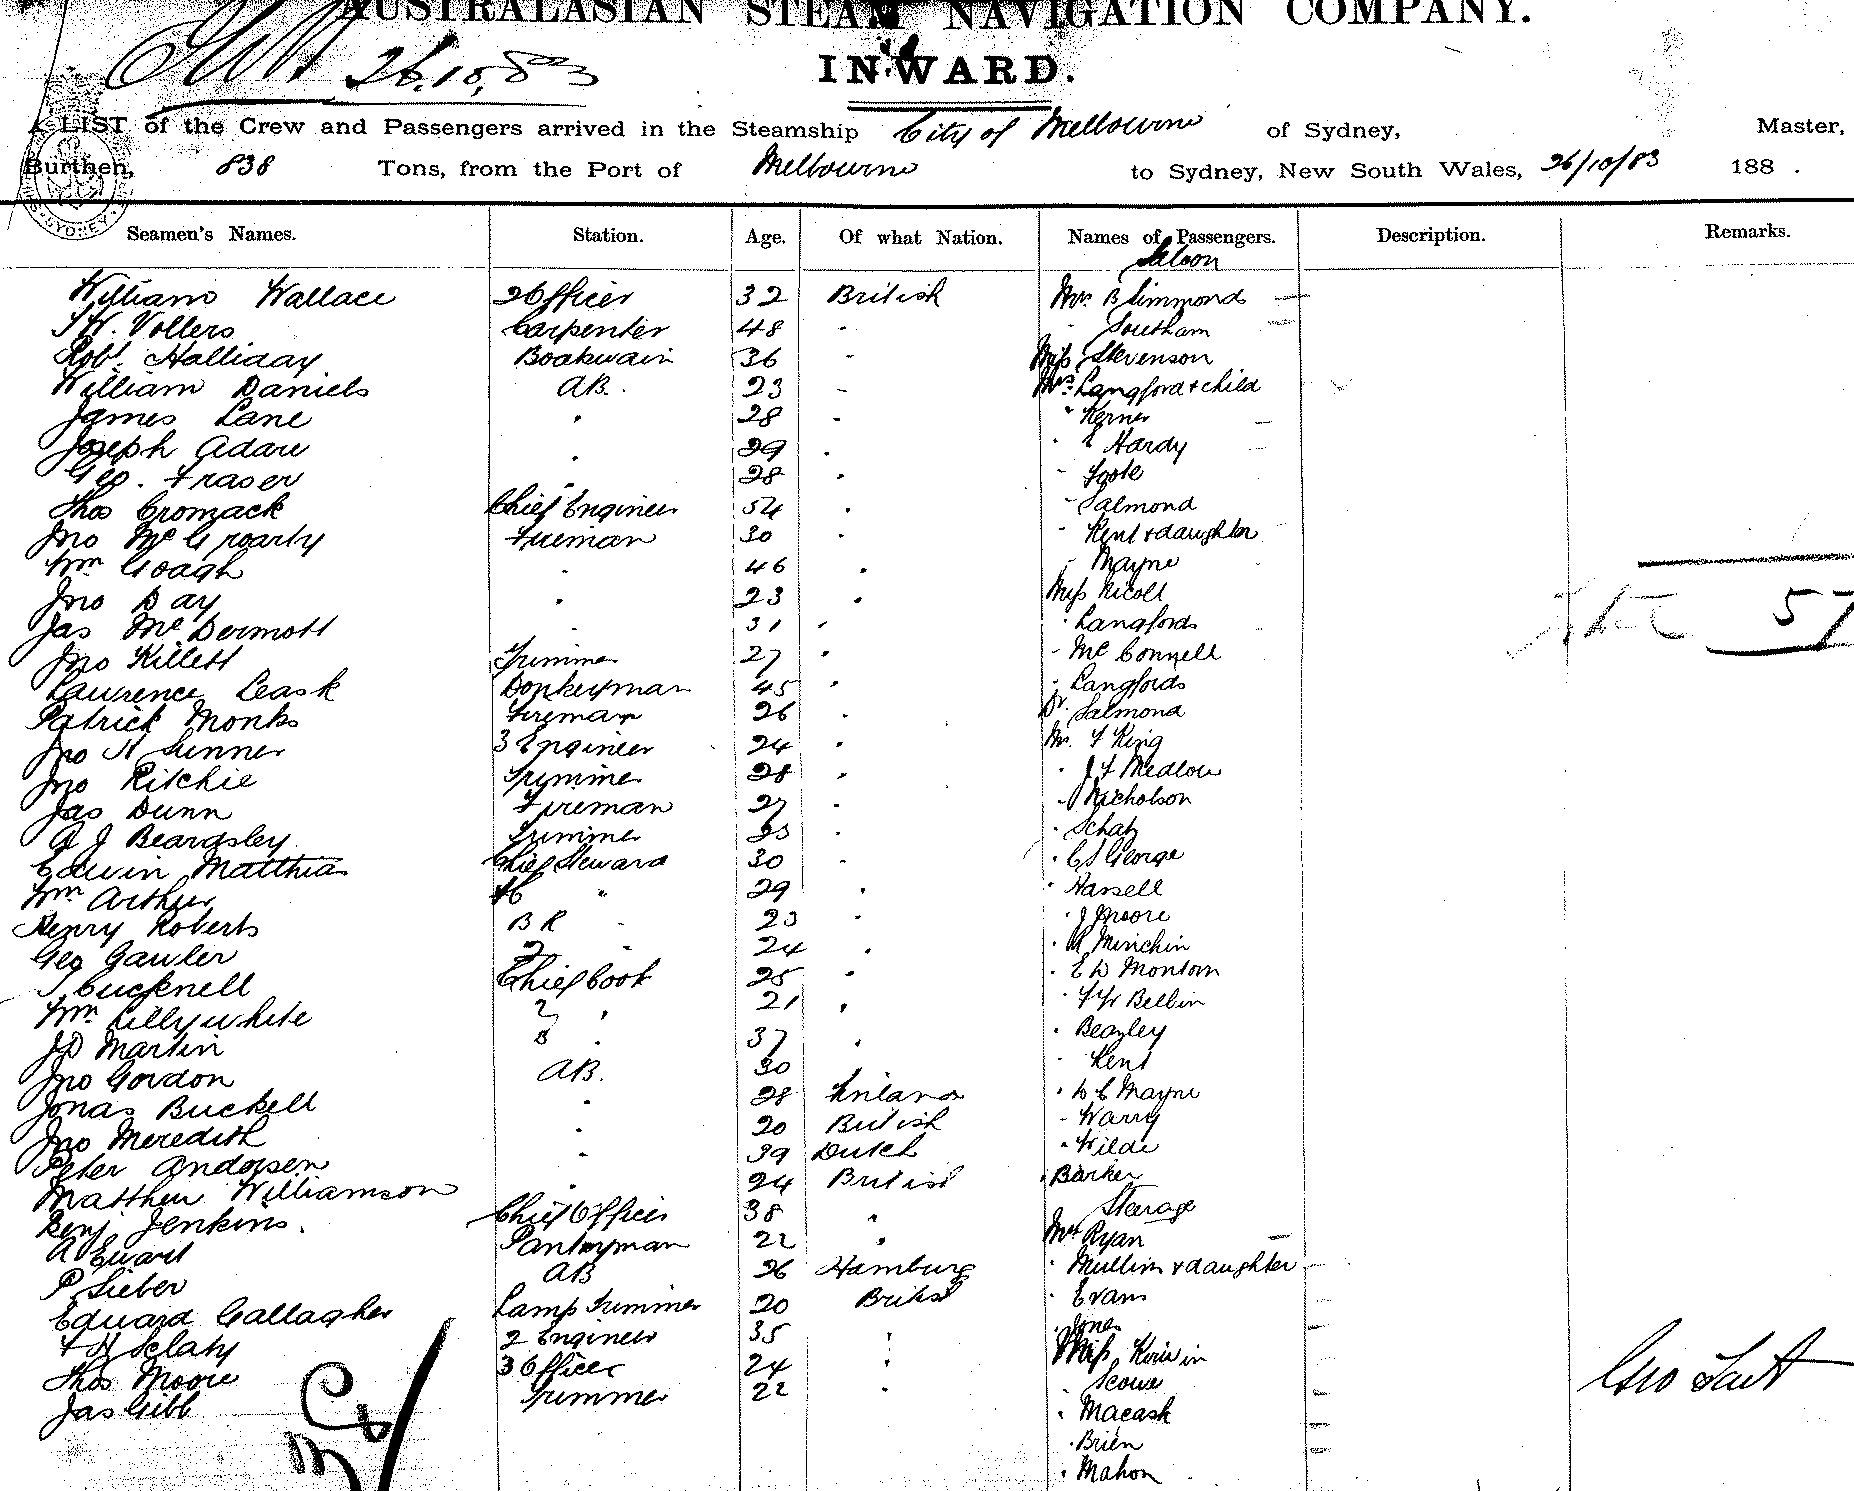 AUSTRALASIAN STEAM NAVIGATION COMPANY.
26.10.83
INWARD.
A LIST of the Crew and Passengers arrived in the Steamship City of Melbourne of Sydney, Master,
Burthen, 838 Tons, from the Port of Melbourne to Sydney, New South Wales, 26/10/83 188 .
Seamen's Names. Station. Age. Of what Nation. Names of Passengers. Description. Remarks.
Saloon
William Wallace 2 Officer 32 British Mrs B Simmonds
Vollers Carpenter 48 " Southam
Robt. Halliday Boatswain 36 " Miss Stevenson
William Daniels AB. 23 " Mrs. Langford & child
James Lane " 28 " " Kerner
Joseph Adare " 29 " " E Hardy
Geo. Fraser " 28 " " Foote
Thos Cromack Chief Engineer 54 " " Salmond
Jno McGroarty Fireman 30 " " Kent & daughter
Wm Goagh " 46 " " Mayne
Jno Day " 23 " Miss Nicoll
Jas McDermott " 31 " " Langfords
Jno Killett Trimmer 27 " " McConnell
Lawrence Leask Donkeyman 45 " " Langfords
Patrick Monks Fireman 26 " Dr. Salmond
Jno H Sunner 3 Engineer 24 " Mr. F King
Jno Ritchie Trimmer 28 " " J F Medlow
Jas Dunn Fireman 27 " " Nicholson
A J Beardsley Trimmer 23 " " Schatz
Edwin Matthias Chief Steward 30 " " George
Wm Arthur " 29 " " Hassell
Henry Roberts B R " 23 " " J Moore
Geo Gawler 2 " 24 " " A Minchin
Cucknell Chief Cook 25 " " E D Montorn
Wm Lillywhite 2 " 21 " " Bellin
J D Martin 3 " 37 " " Beazley
Jno Gordon AB. 30 " Kent
Jonas Buckell " 28 Finland " Mayne
Jno Meredith " 20 British " Warry
Peter Andersen " 39 Dutch " Wilde
Matthew Williamson " 24 British " Barker
Steerage
Benj. Jenkins. Chief Officer 38 " Mrs Ryan
A Ewart Pantryman 22 " " Mullins & daughter
P Sieber AB 26 Hamburg " Evans
Edward Gallagher Lamp Trimmer 20 British " Jones
F H Sclaty 2 Engineer 35 " Miss
Thos Moore 3 Officer 24 " " Scowe
Jas Gibb Trimmer 22 " " Macash
" Brien
" Mahon
57